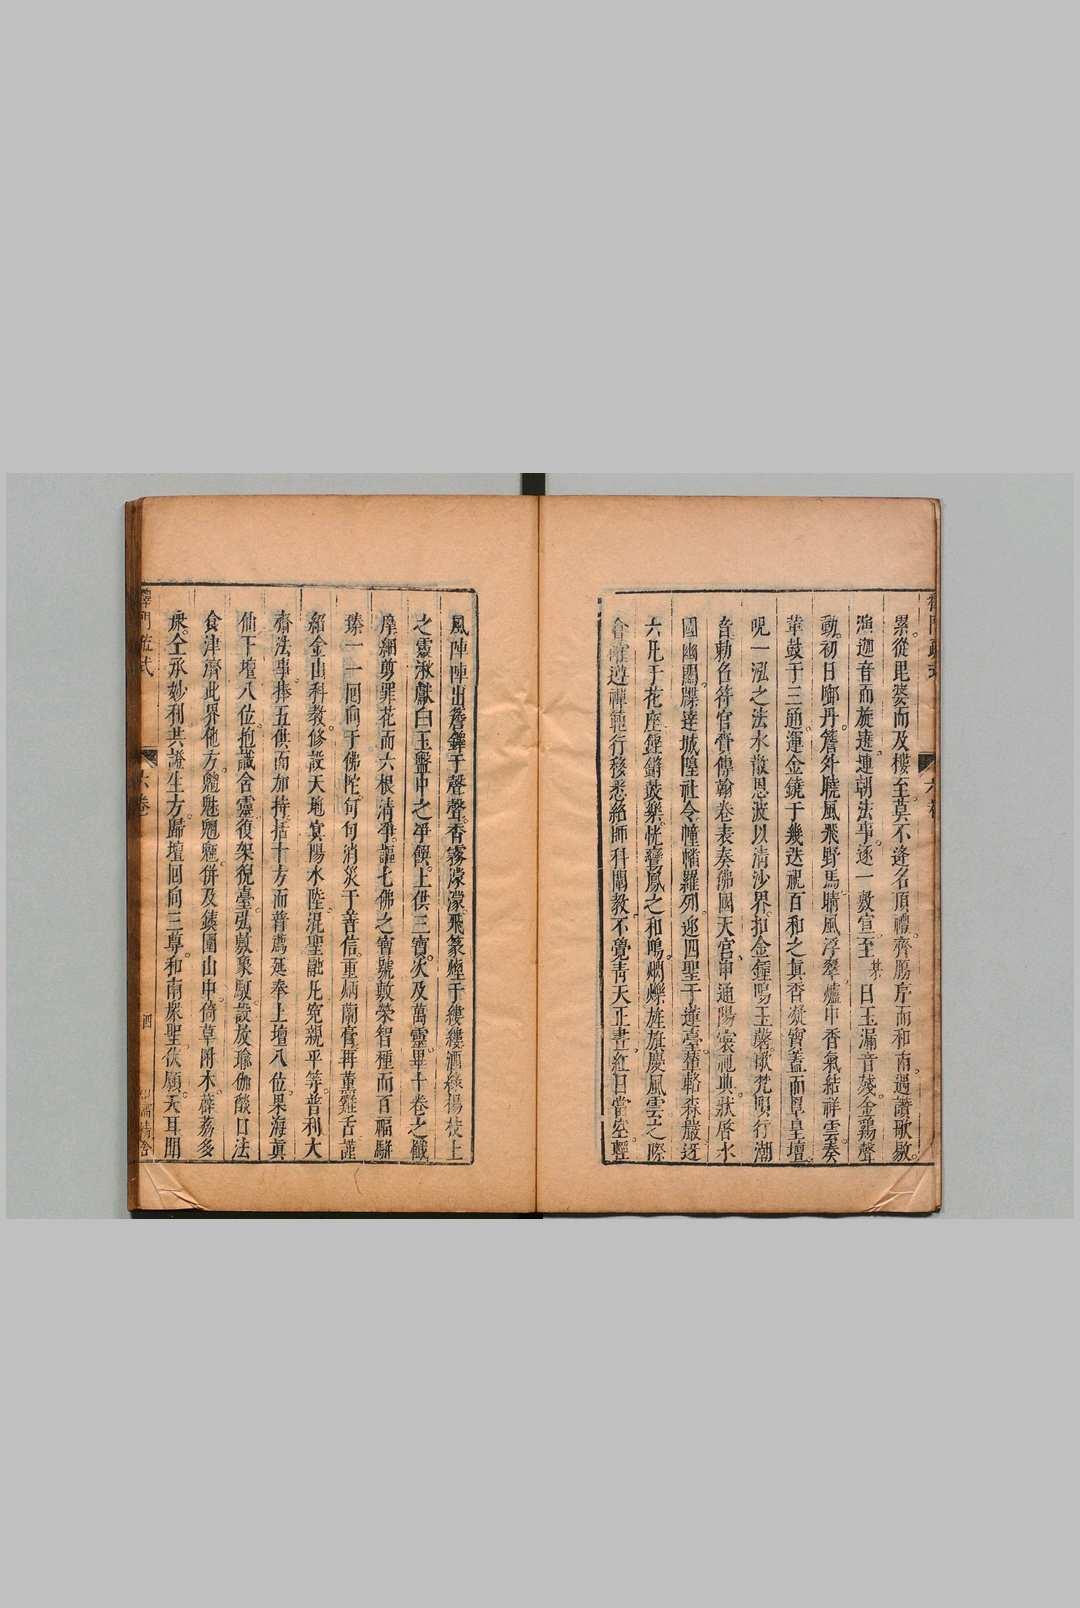 累從毘婆而及樓至莫不逢名頂禮齊臈斥而和南遇讚歌敭
演迦音而旋遶連朝法事逐一敷宣至某日玉漏音殘金鷄聲
動初日啣丹簷外曉風飛野馬晴風浮翠爐中香氣結祥雲奏
葷鼓于三通運金鐃于幾迭祝百和之真香凝寶蓋而覃皇壇
呪一泓之法水散恩波以清沙界扣金鍾鳴玉磬梵唄行潮
音勅召符官賷傳翰卷表奏佛國天宮申通陽衷祀典狀啓水
國幽關牒達城隍社令幢幡羅列迎四聖于蓮臺輦輅森嚴迓
六凡于花座鏗鏘鼓樂恍鸞鳳之和鳴爛爍旌旗慶風雲之際
會確遵禪範行移悉給師科闡教不覺青天正晝紅日當空輕
風陣陣出簷鐸于聲聲香霧濛濛飛篆烟于縷縷酒綠楊枝上
之靈湫獻白玉盤中之淨饌上供三寶次及萬靈畢十卷之懺
摩網剪罪花而六根清淨謳七佛之寶號敷榮智種而百福駢
臻一一囘向于佛陀句句消災于善信重炳蘭膏再薰雞舌謹
紹金山科教修設天地冥陽水陸混聖融凡寃親平等普利大
齋法事捧五供而加持括十方而普薦延奉上壇八位果海真
仙下壇八位抱識含靈復架猊臺弘敷象馭設放瑜伽燄口法
食津濟此界他方魑魅魍魎併及鐵圍山中倚草附木薜荔多
衆仝承妙利共證生方歸壇囘向三尊和南衆聖伏願天耳朗
釋門疏式 六卷 四